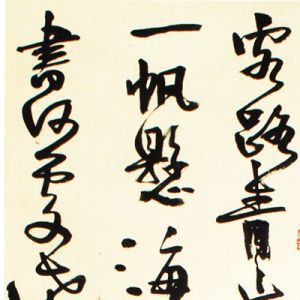 客路青山
一帆懸海
書何處達